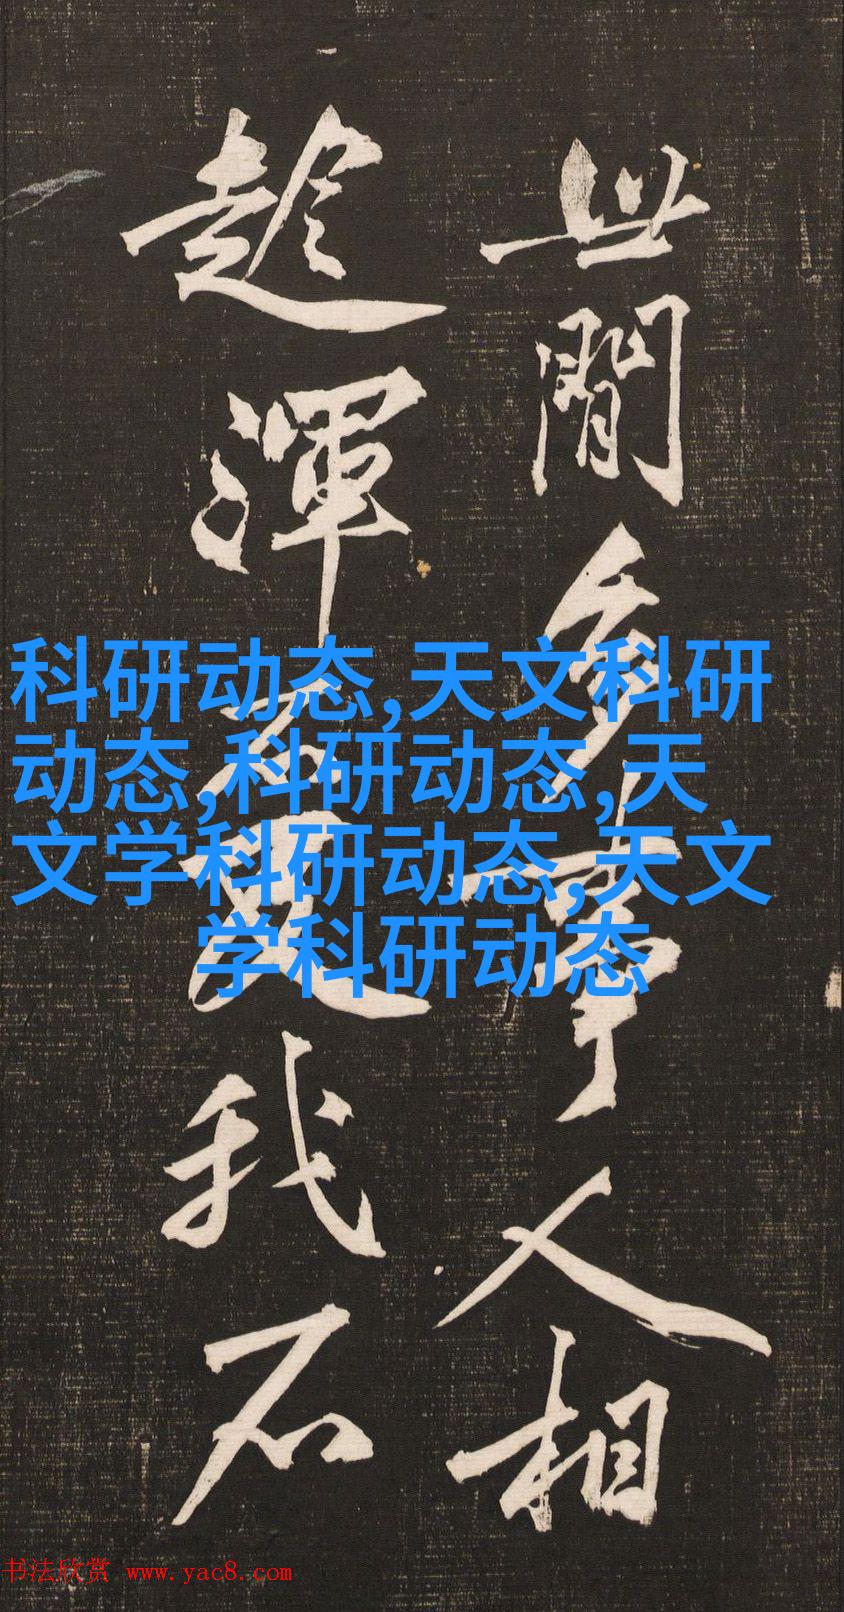 世間多事人相
趁渾不我石
科研动态,天文科研
动态,科研动态,天
文学科研动态,天文
学科研动态
书法欣赏 www.yac8.com